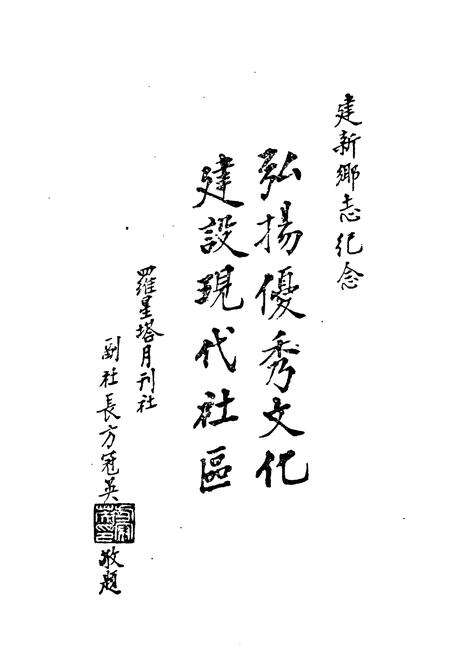 建新鄉志纪念
弘揚優秀文化
建設現代社區
羅星塔月刊社
副社長方冠英
敬題